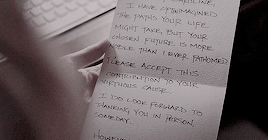 I HAVE OFT IMAGINED
THE PATHS YOUR LIFE
MIGHT TAKE, BUT YOUR
CHOSEN FUTURE IS MORE
NOBLE THAN I EVER FATHOMED.
PLEASE ACCEPT THIS
CONTRIBUTION TO YOUR
VIRTUOUS CAUSE.
I DO LOOK FORWARD TO
THANKING YOU IN PERSON
SOMEDAY.